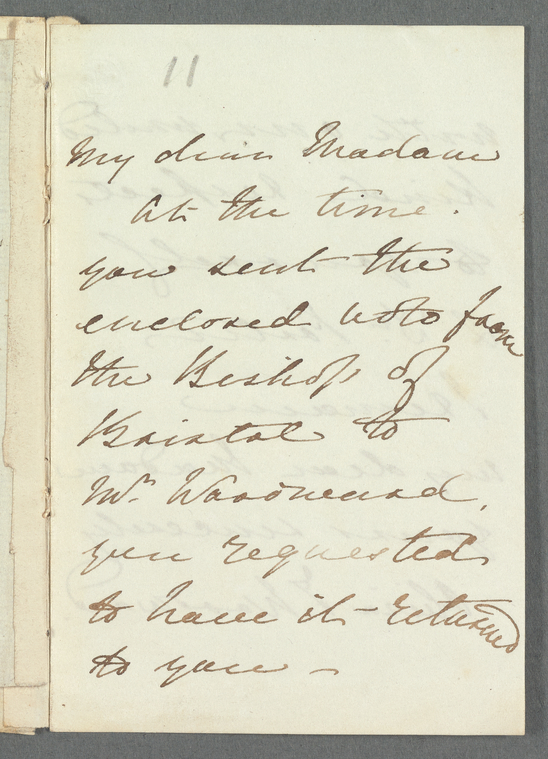 11
My dear Madam
At the time.
you sent the
enclosed note from
the Bishop of
Bristol to
Mr. Woodward,
you requested
to have it returned
to you –